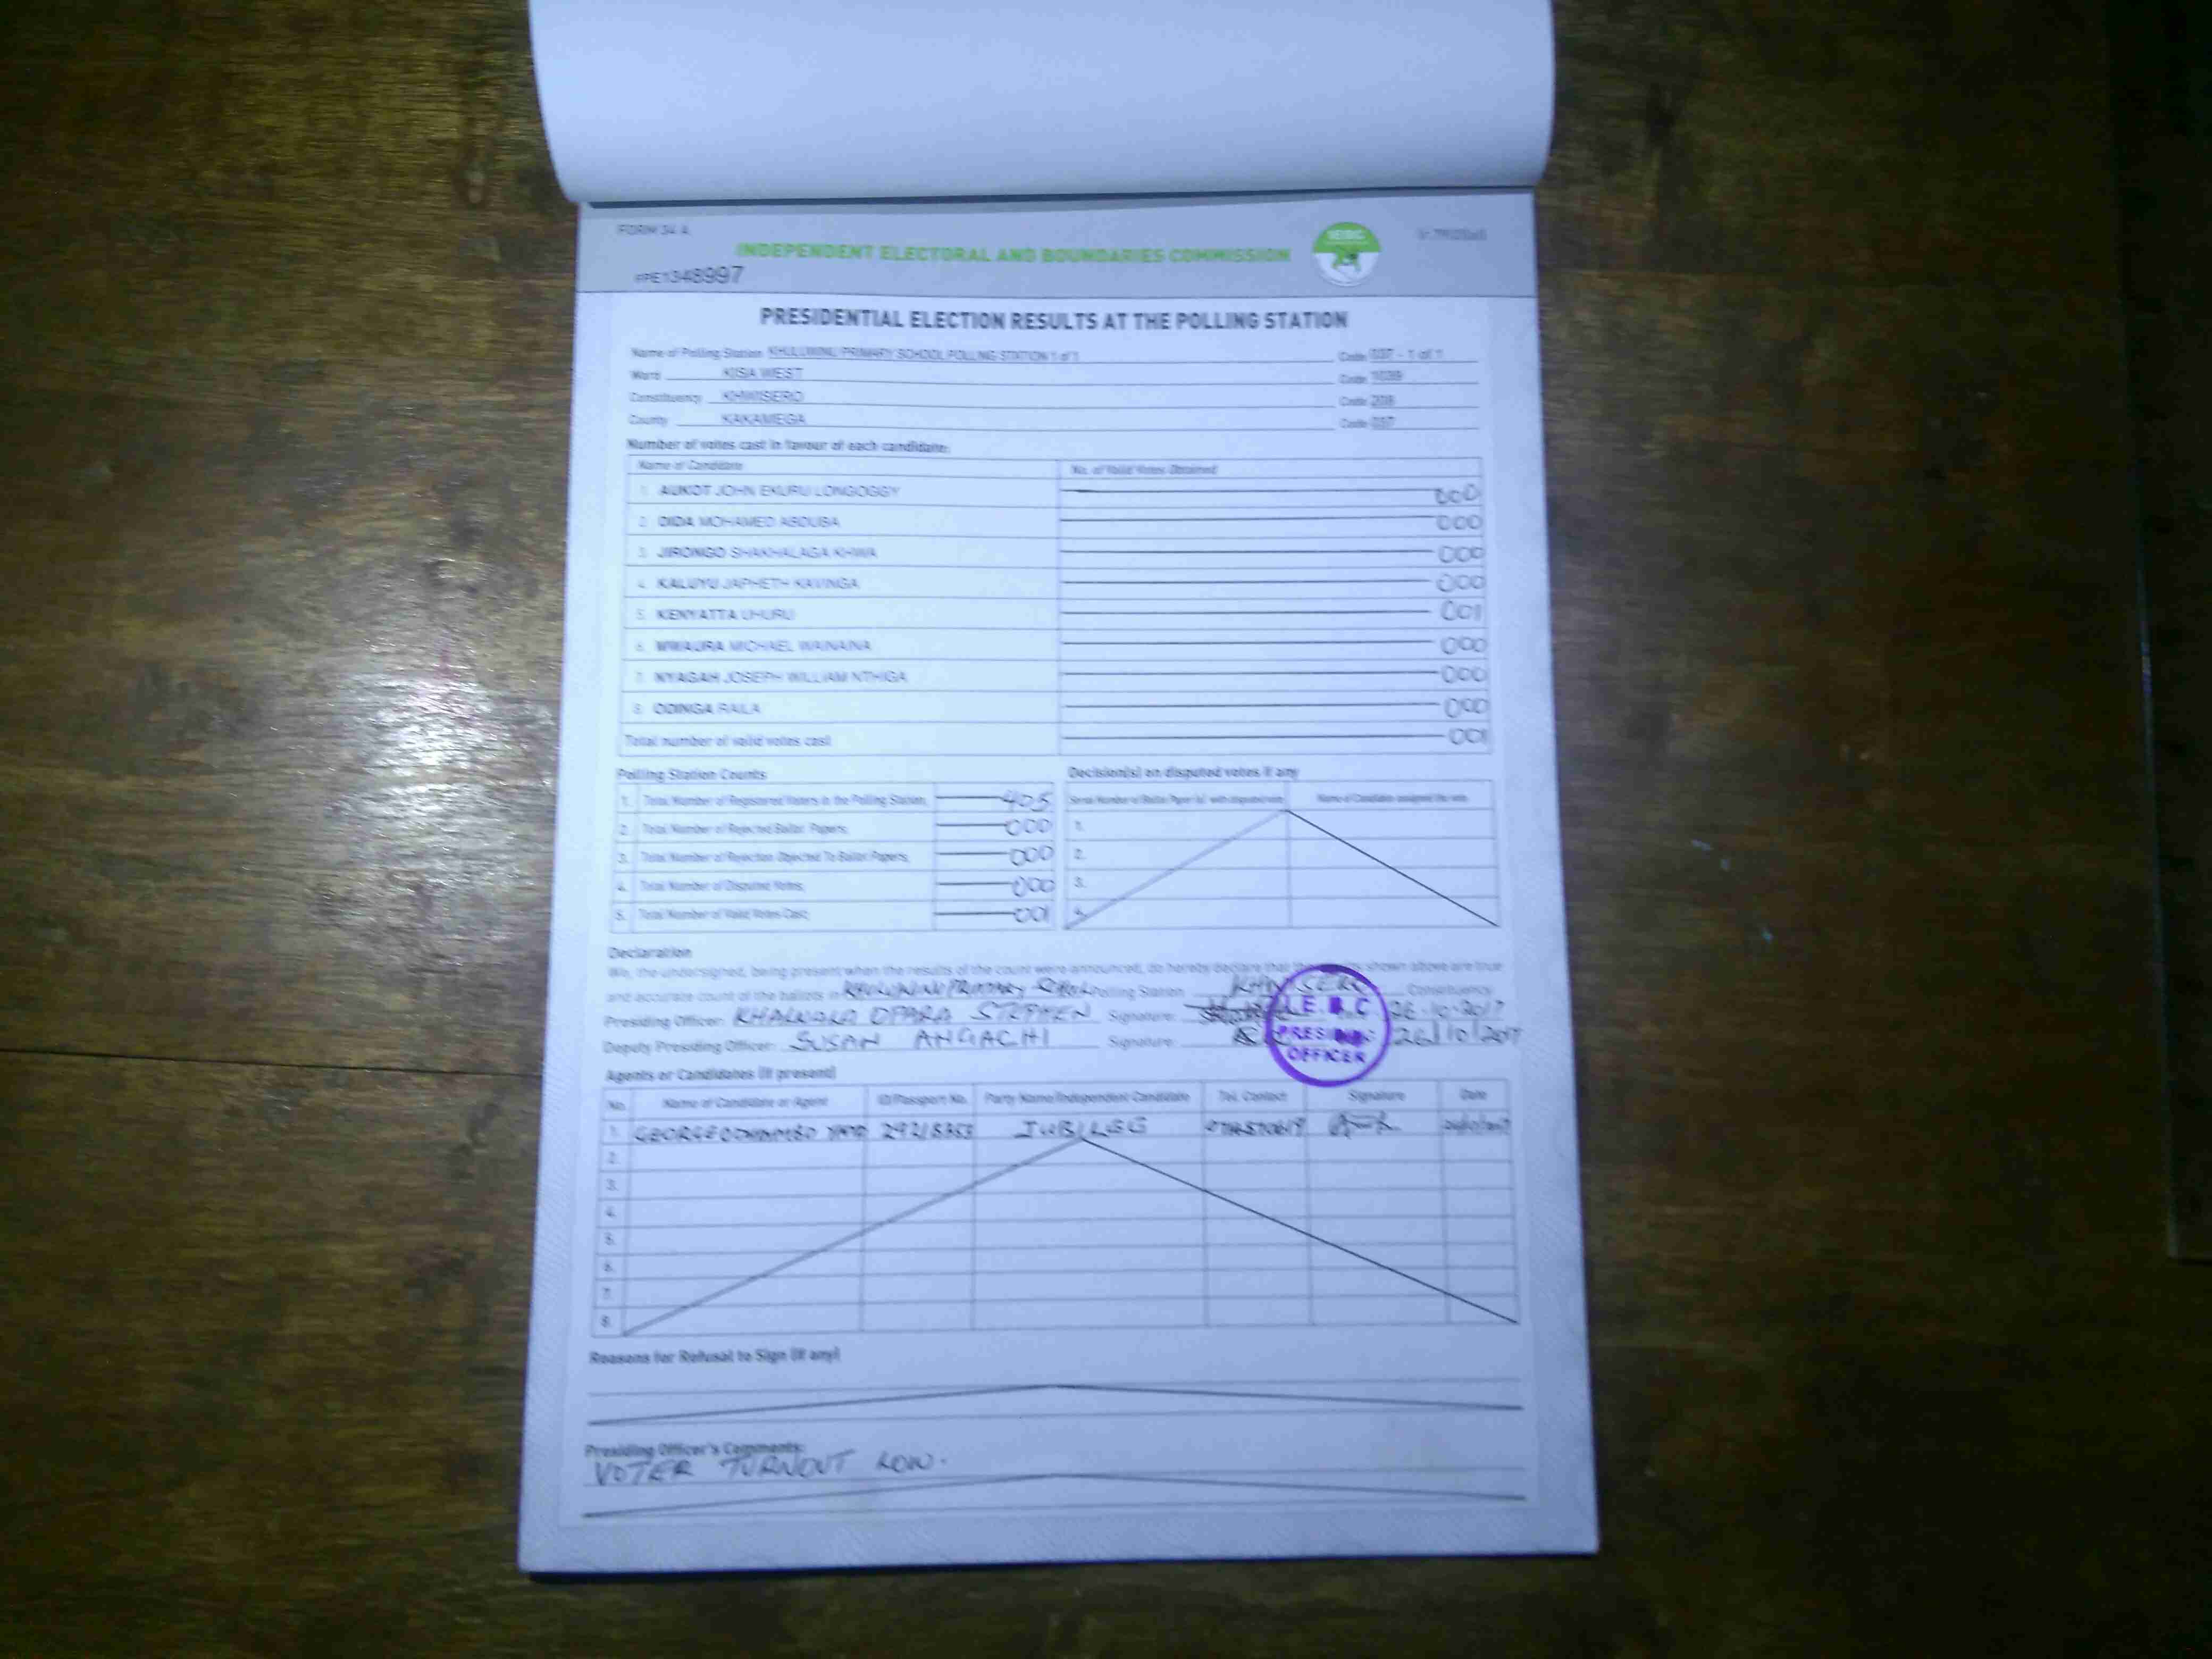 FORM 34 A
INDEPENDENT ELECTORAL AND BOUNDARIES COMMISSION
IEBC
PPE1348997
PRESIDENTIAL ELECTION RESULTS AT THE POLLING STATION
Name of Polling Station KHULUWINU PRIMARY SCHOOL POLLING STATION 1 of 1 Code 037 - 1 of 1
Ward KISA WEST Code 1039
Constituency KHWISERO Code 208
County KAKAMEGA Code 037
Number of votes cast in favour of each candidate:
Name of Candidate No. of Valid Votes Obtained
1. AUKOT JOHN EKURU LONGOGGY 000
2. DIDA MOHAMED ABDUBA 000
3. JIRONGO SHAKHALAGA KHWA 000
4. KALUYU JAPHETH KAVINGA 000
5. KENYATTA UHURU 001
6. MWAURA MICHAEL WAINAINA 000
7. NYAGAH JOSEPH WILLIAM NTHIGA 000
8. ODINGA RAILA 000
Total number of valid votes cast 001
Polling Station Counts
1. Total Number of Registered Voters in the Polling Station; 405
2. Total Number of Rejected Ballot Papers; 000
3. Total Number of Rejection Objected To Ballot Papers; 000
4. Total Number of Disputed Votes; 000
5. Total Number of Valid Votes Cast; 001
Decision(s) on disputed votes if any
Serial Number of Ballot Paper (s) with disputed vote Name of Candidate assigned the vote
1.
2.
3.
4.
Declaration
We, the undersigned, being present when the results of the count were announced, do hereby declare that the shown above are true
and accurate count of the ballots in KHULUWINU PRIMARY SCHOOL Polling Station Constituency
Presiding Officer: OPARA STEPHEN Signature: 26.10.2017
Deputy Presiding Officer: SUSAN ANGACHI Signature: 26/10/2017
I.E.B.C
PRESIDING
OFFICER
Agents or Candidates (if present)
No. Name of Candidate or Agent ID/Passport No. Party Name/Independent Candidate Tel. Contact Signature Date
1. GEORGE JUBILEE
2.
3.
4.
5.
6.
7.
8.
Reasons for Refusal to Sign (if any)
Presiding Officer's Comments:
VOTER TURNOUT LOW.